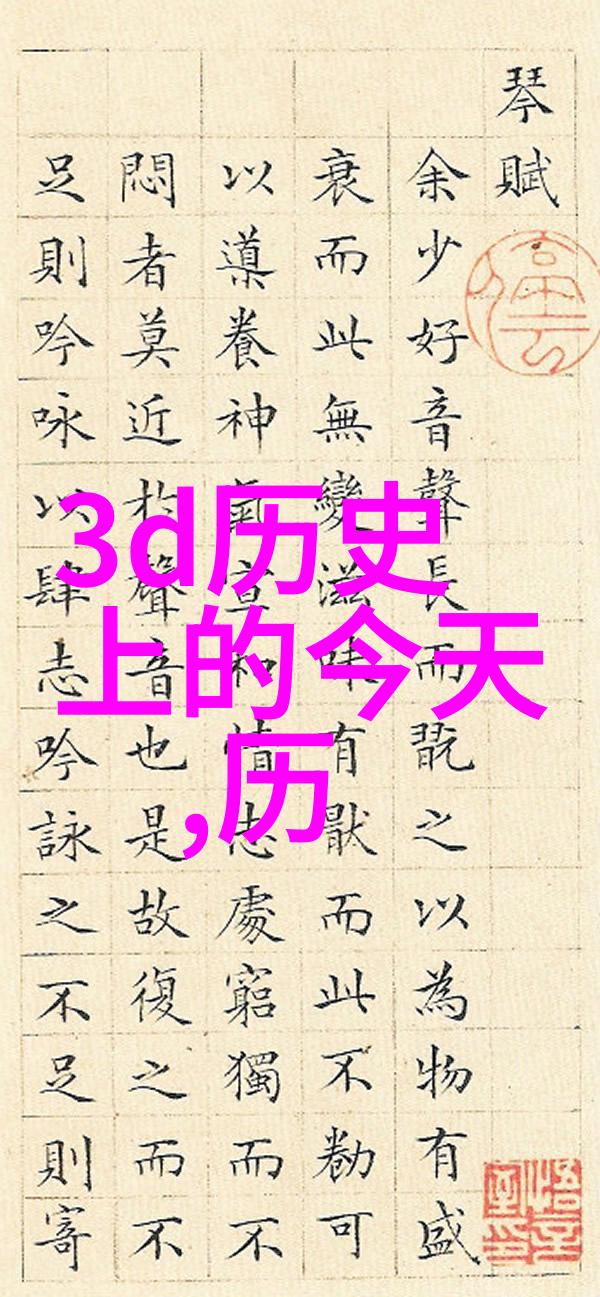 琴賦
余少好音聲長而翫之以為物有盛
衰而此無變滋味有猒而此不勌可
以導養神氣宣和情志處窮獨而不
悶者莫近於聲音也是故復之而不
足則吟咏以肆志吟詠之不足則寄
3d历史
上的今天
,历